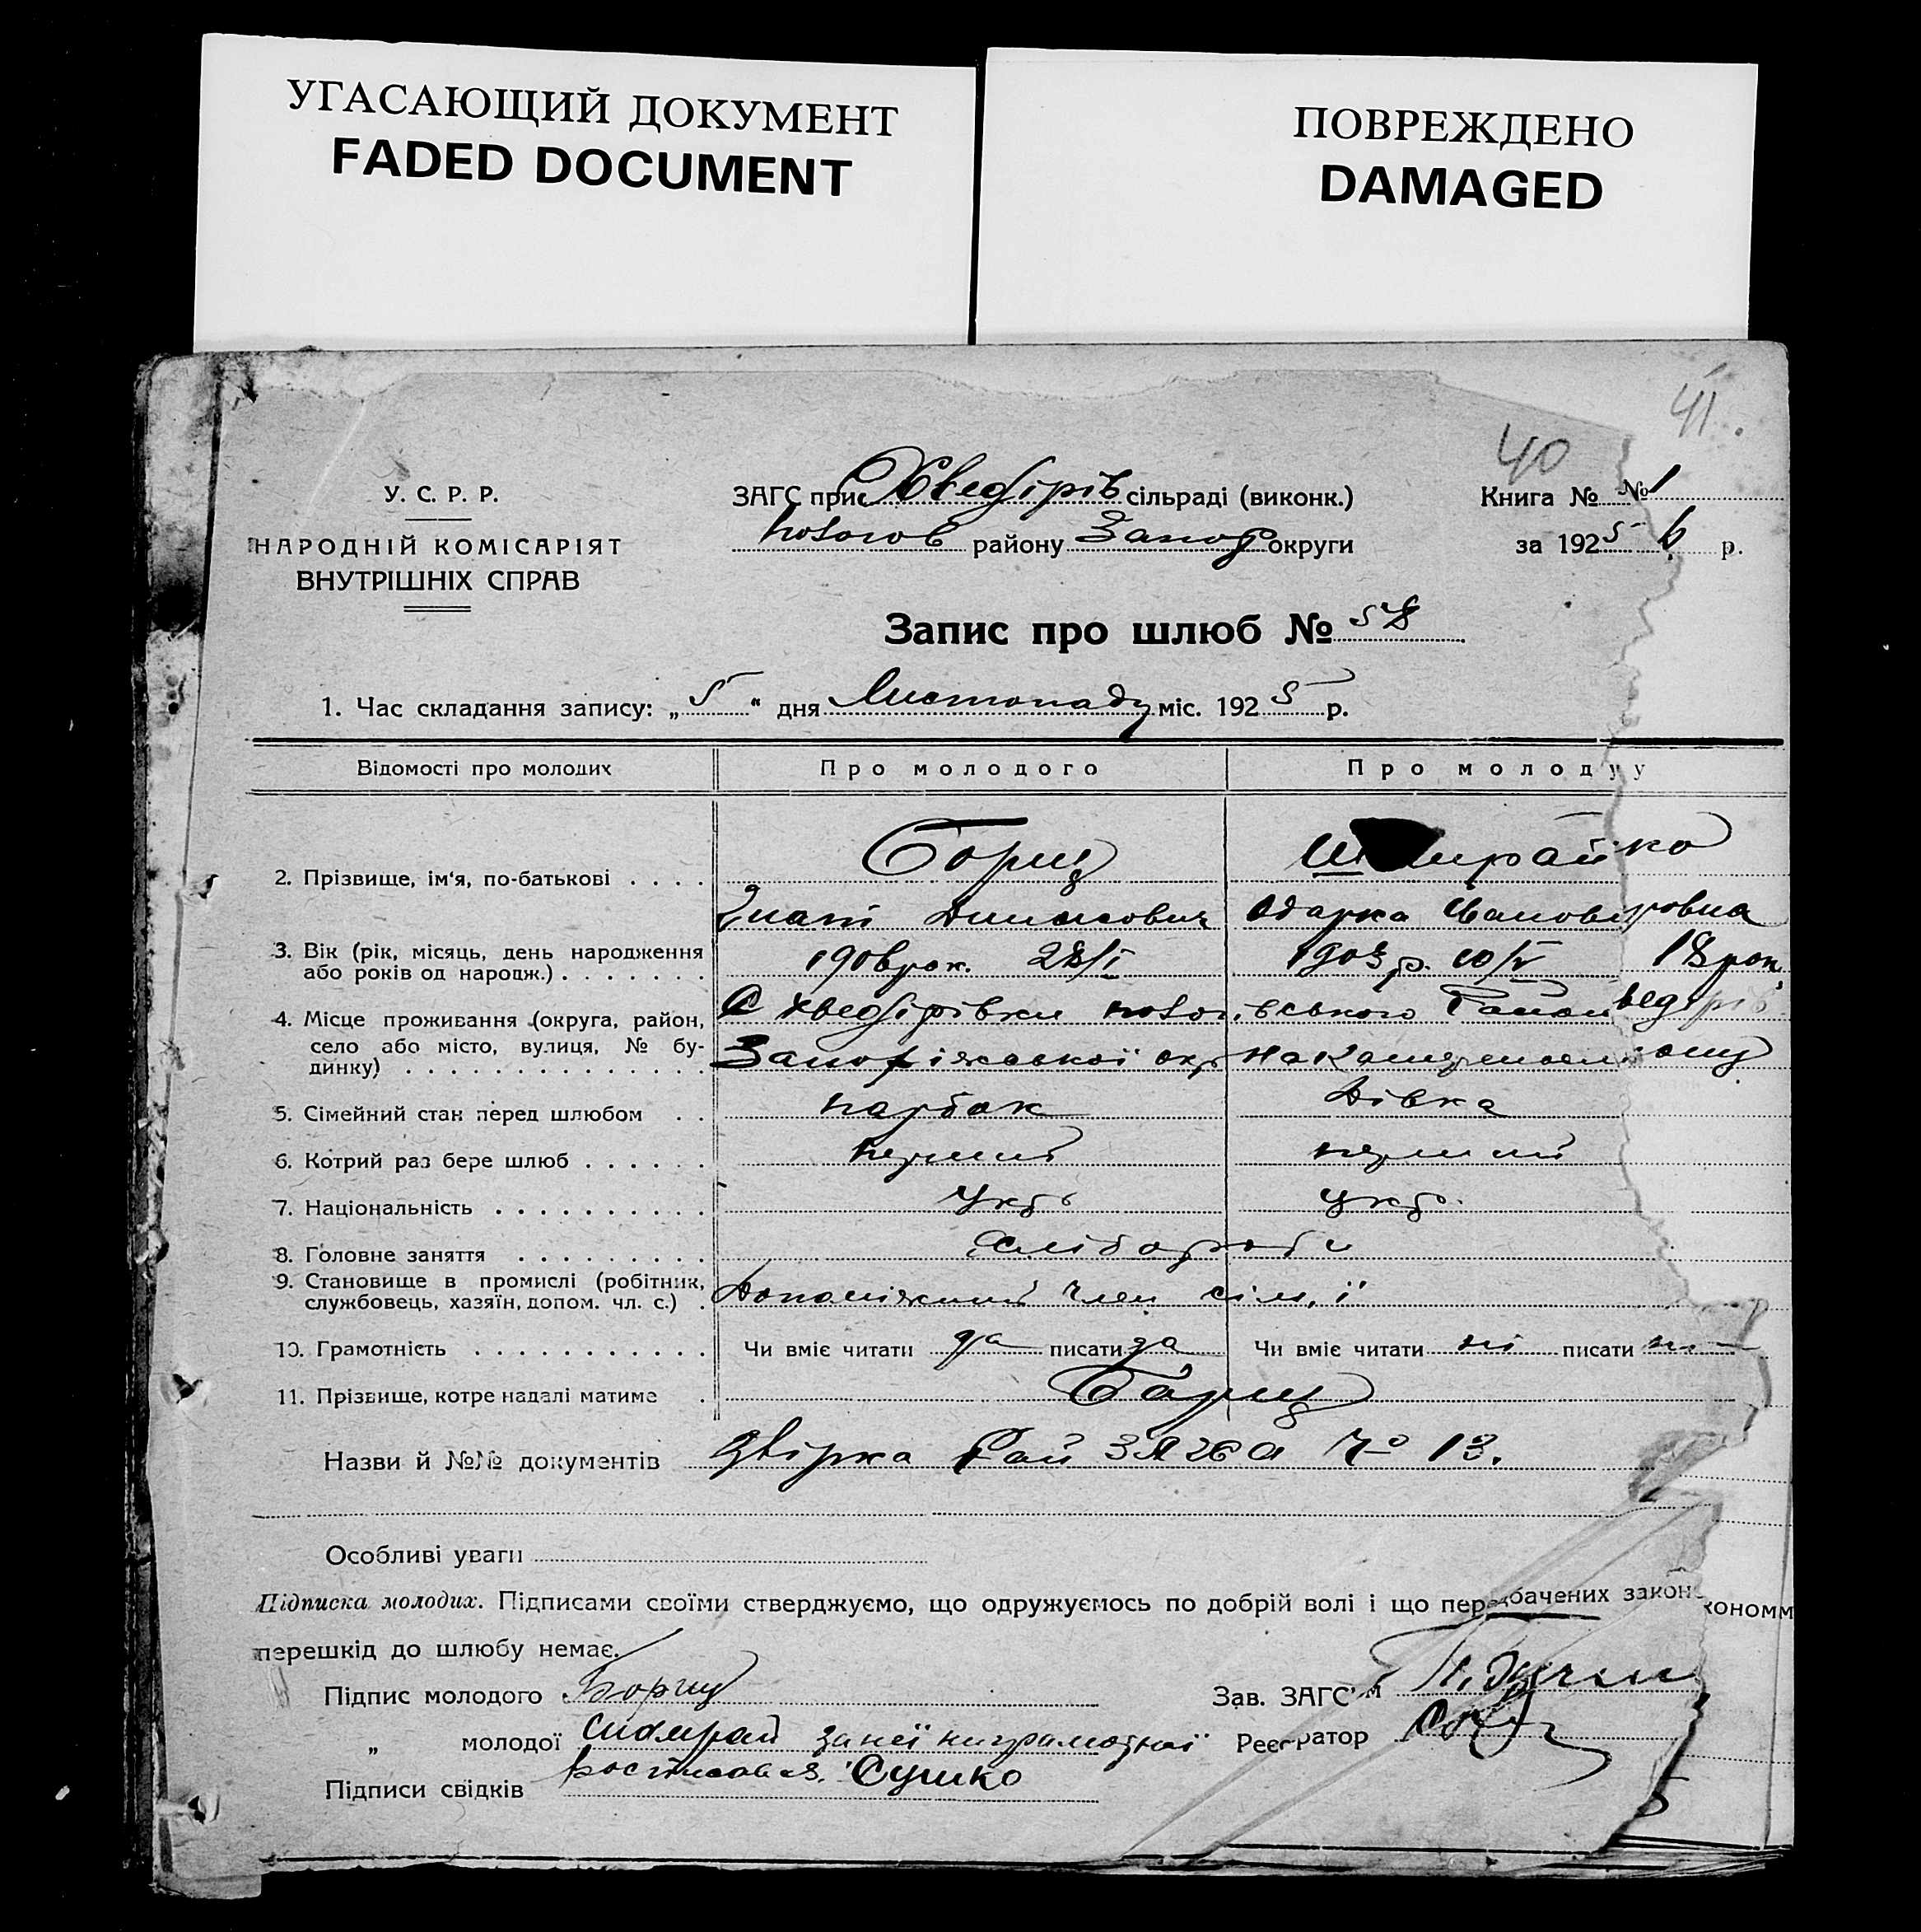 УГАСАЮЩИЙ ДОКУМЕНТ
FADED DOCUMENT
ПОВРЕЖДЕНО
DAMAGED
41
40
У. С. Р. Р.
НАРОДНІЙ КОМІСАРІЯТ
ВНУТРІШНІХ СПРАВ
ЗАГС при Хведірів сільраді (виконк.)
района Запор округи
Книга № № 1
за 1925 6 р.
Запис про шлюб № 58
1. Час складання запису: „ 5 “ дня Листопаду міс. 1925 р.
Відомості про молодих Про молодого Про молоду у
2. Прізвище, ім'я, по-батькові . . . . Борщ
Одарка
3. Вік (рік, місяць, день народження 1906 рок. 28/I 1903 р. 10/V 18 рок
або років од народж.) . . . . . . .
4. Місце проживання (округа, район, С Хведірівки
село або місто, вулиця, № бу- Запоріжської окр
динку) . . . . . . . . . . . . .
5. Сімейний стан перед шлюбом . . парубок Дівка
6. Котрий раз бере шлюб . . . . . . перший перший
7. Національність . . . . . . . . . . Укр. укр.
8. Головне заняття . . . . . . . . . Хлібороби
9. Становище в промислі (робітник, Допоміжний член сім,ї
службовець, хазяїн, допом. чл. с.) .
10. Грамотність . . . . . . . . . . . Чи вміє читати да писати да Чи вміє читати ні писати ні
11. Прізвище, котре надалі матиме . Борщ
Назви й №№ документів Рай ЗАГСа № 13.
Особливі уваги
Підписка молодих. Підписами своїми стверджуємо, що одружуємось по добрій волі і що передбачених закон кономм
перешкід до шлюбу немає.
Підпис молодого Борщ
Зав. ЗАГС'м
„ молодої за неї неграмотної
Реєстратор
Сушко
Підписи свідків